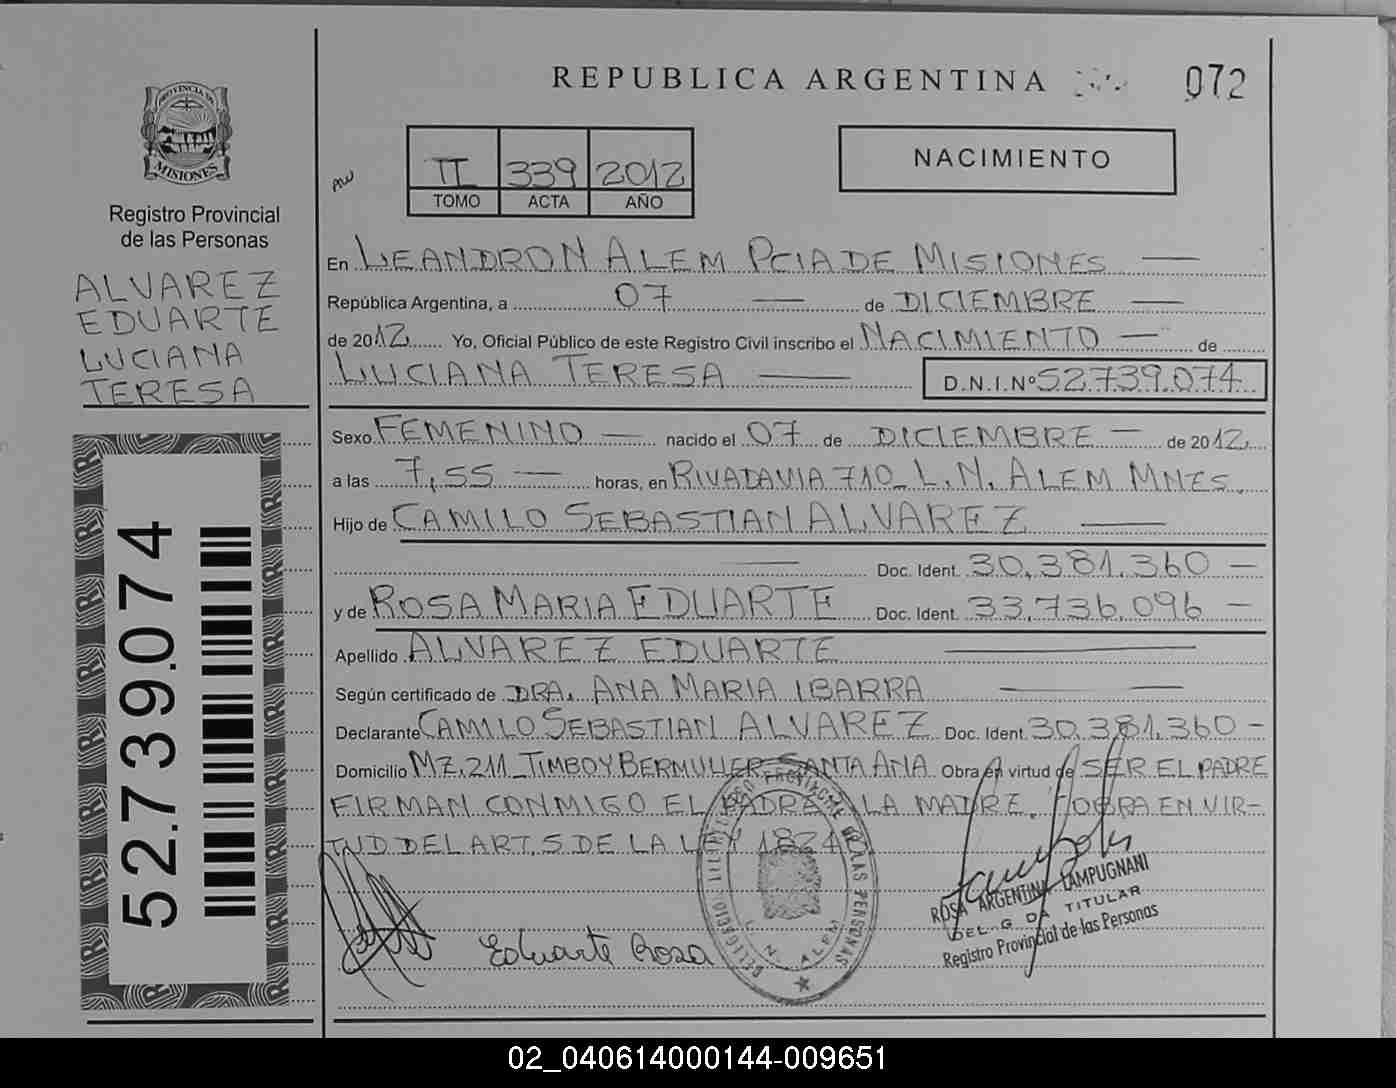 REPUBLICA ARGENTINA
072
PROVINCIA DE
MISIONES
Registro Provincial
de las Personas
ALVAREZ
EDUARTE
LUCIANA
TERESA
52.739.074
II 339 2012
TOMO ACTA AÑO
NACIMIENTO
En LEANDRO N ALEM PCIA DE MISIONES —
República Argentina, a 07 — de DICIEMBRE —
de 2012 Yo, Oficial Público de este Registro Civil inscribo el NACIMIENTO — de
LUCIANA TERESA — D.N.I.Nº 52.739.074
Sexo FEMENINO — nacido el 07 de DICIEMBRE — de 2012
a las 7,55 — horas, en RIVADAVIA 710_ L.N. ALEM MNES.
Hijo de CAMILO SEBASTIAN ALVAREZ —
— Doc. Ident. 30.381.360 —
y de ROSA MARIA EDUARTE Doc. Ident. 33.736.096 —
Apellido ALVAREZ EDUARTE —
Según certificado de DRA. ANA MARIA IBARRA —
Declarante CAMILO SEBASTIAN ALVAREZ Doc. Ident. 30.381.360 —
Domicilio MZ.211_TIMBOY BERMULLER-SANTA ANA Obra en virtud de SER EL PADRE
FIRMAN CONMIGO EL PADRE LA MADRE. OBRA EN VIR-
TUD DEL ART. 5 DE LA LEY 1824
Eduarte Rosa
L. N. ALEM
ROSA ARGENTINA LAMPUGNANI
TITULAR
Registro Provincial de las Personas
02_040614000144-009651